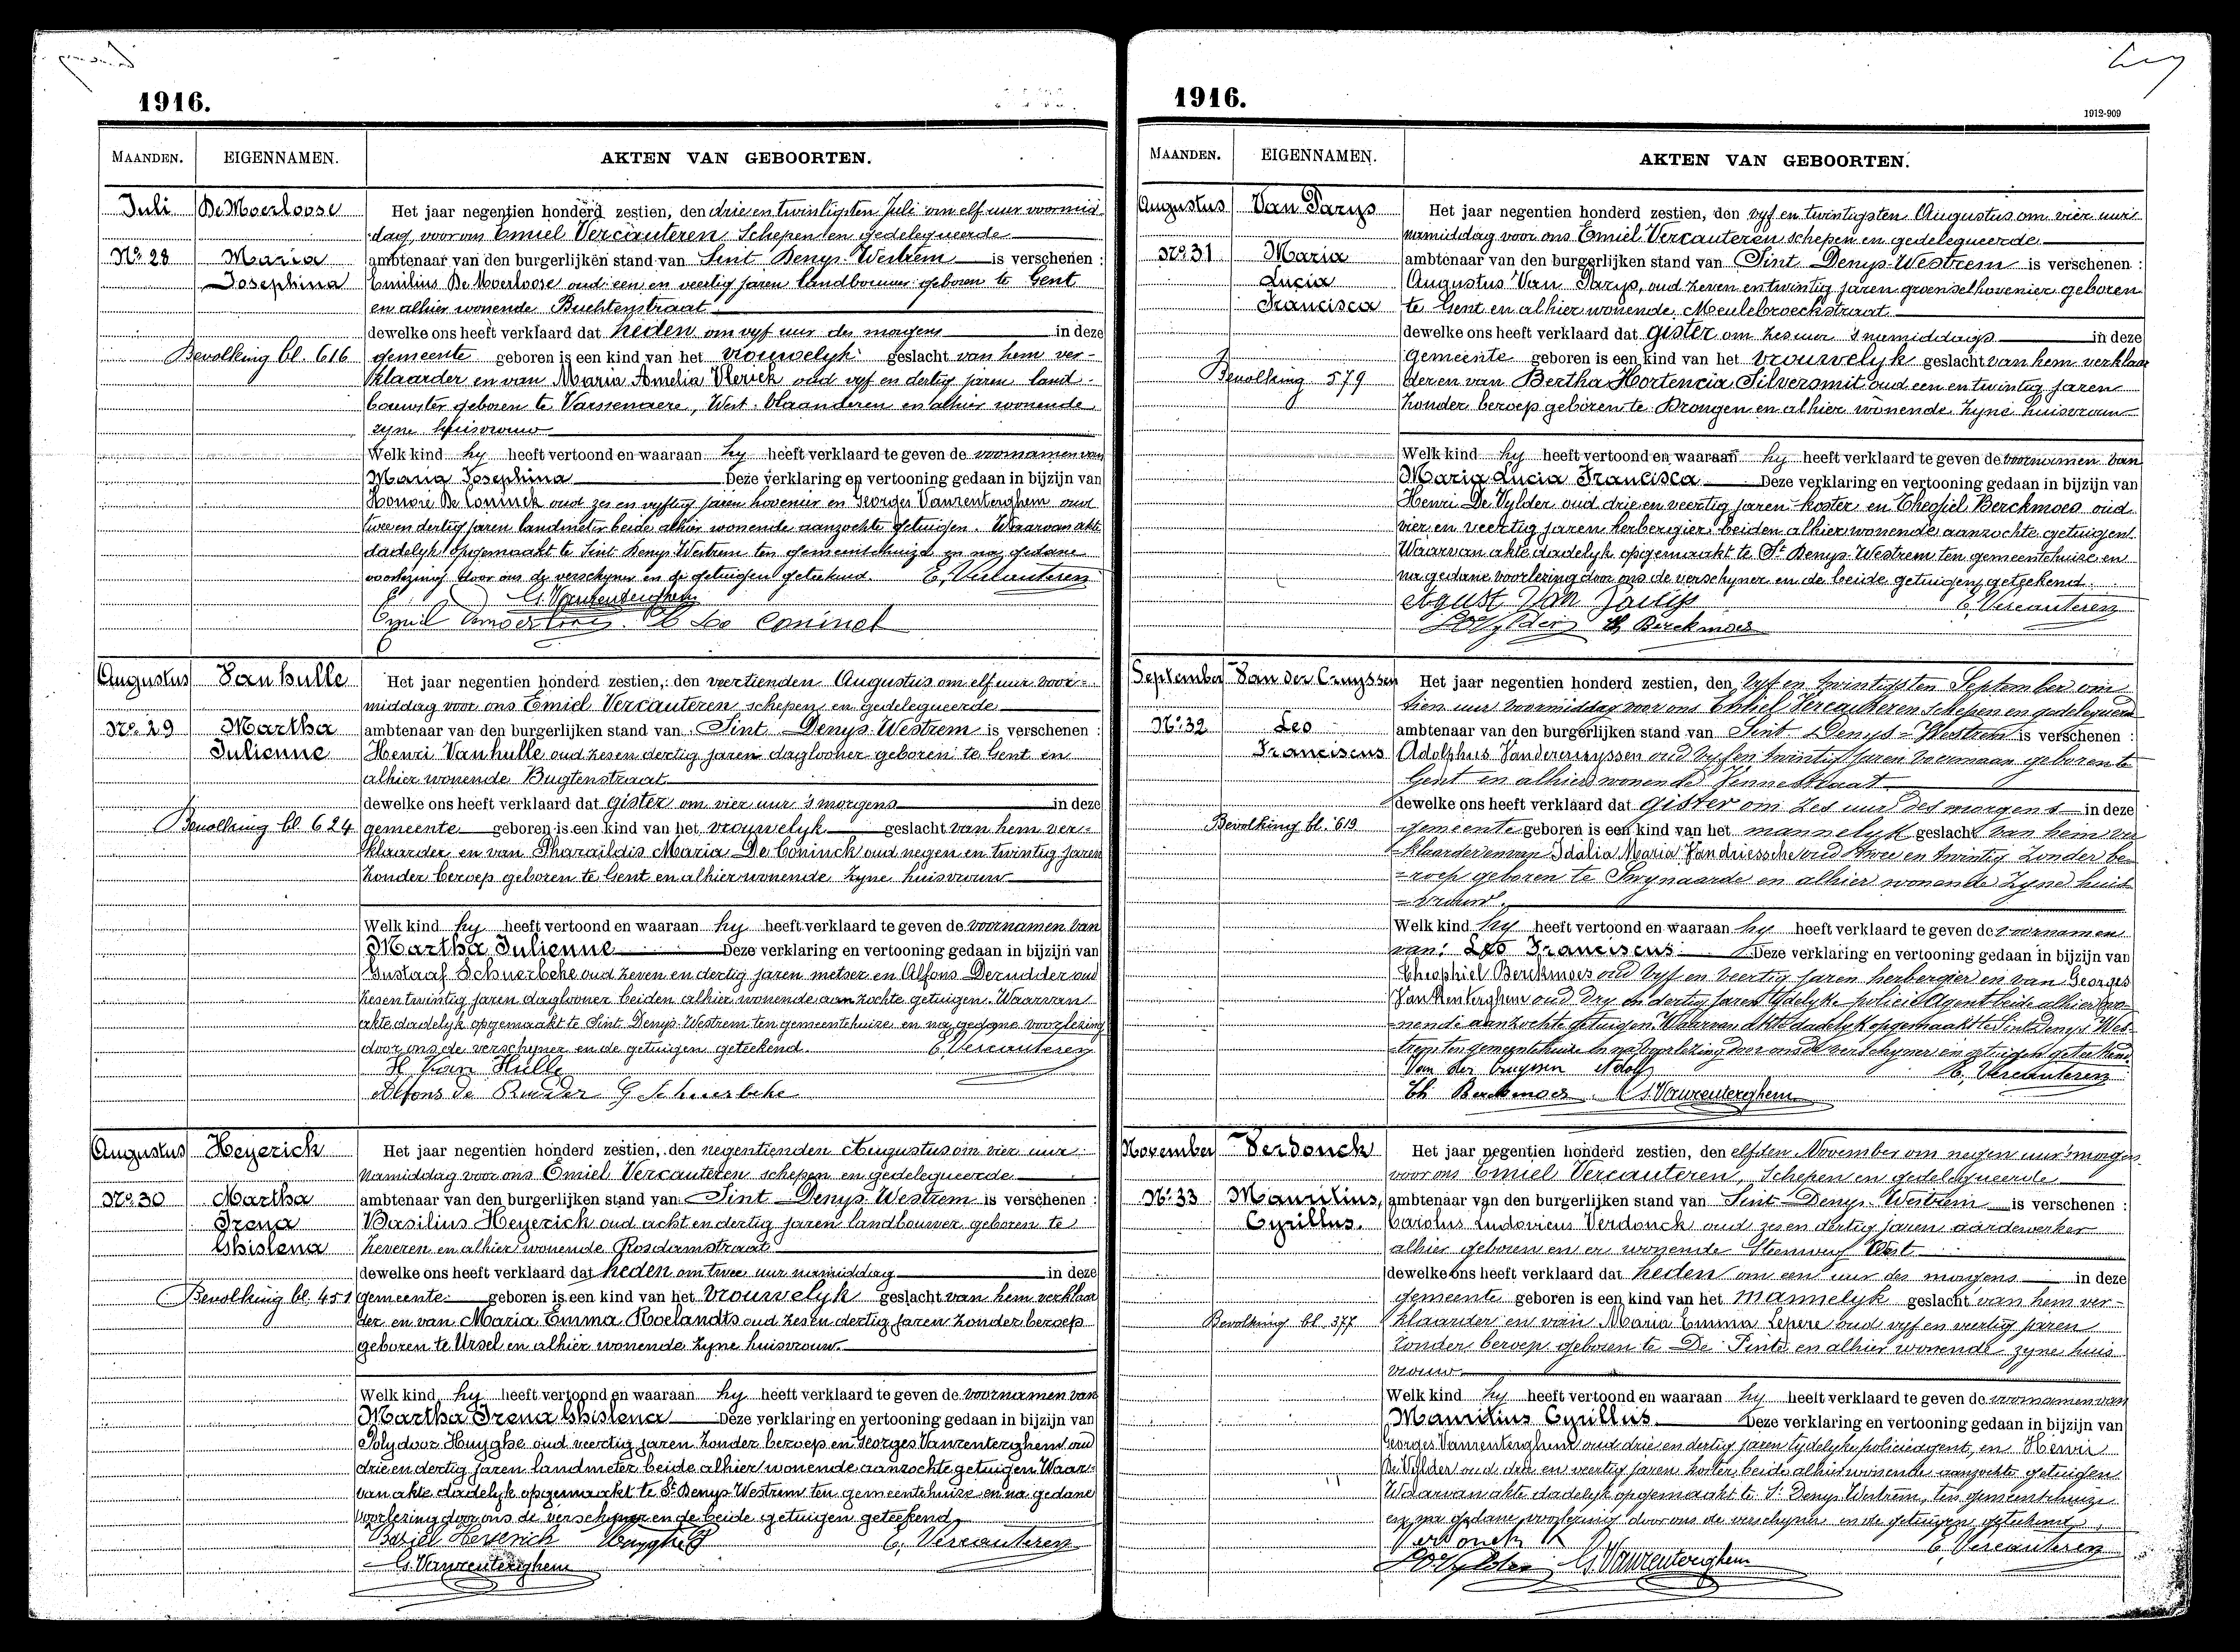 1916.
MAANDEN. EIGENNAMEN. AKTEN VAN GEBOORTEN.
Juli De Moerloose Het jaar negentien honderd zestien, den drie en twintigsten Juli om elf uur voormid
dag, voor ons Emiel Vercauteren Schepen en gedelegueerde
No. 28 Maria ambtenaar van den burgerlijken stand van Sint Denys-Westrem is verschenen :
Josephina Emilius De Moerloose oud een en veertig jaren landbouwer geboren te Gent
en alhier wonende Buchtenstraat
dewelke ons heeft verklaard dat heden om vyf uur des morgens in deze
Bevolking bl. 616 gemeente geboren is een kind van het vrouwelyk geslacht van hem ver-
klaarder en van Maria Amelia Vlerick oud vyf en dertig jaren land-
bouwster geboren te Varssenaere, West-Vlaanderen en alhier wonende
zyne huisvrouw
Welk kind hy heeft vertoond en waaraan hy heeft verklaard te geven de voornamen van
Maria Josephina Deze verklaring en vertooning gedaan in bijzijn van
Honoré De Coninck oud zes en vyftig jaren hovenier en Georges Vanrenterghem oud
twee en dertig jaren landmeter beide alhier wonende aanzochte getuigen. Waarvan akte
dadelyk opgemaakt te Sint Denys Westrem ten gemeentehuize en na gedane
voorlezing door ons de verschyner en de getuigen geteekend. E. Vercauteren
G. Vanrenterghem
De Coninck
Augustus Van hulle Het jaar negentien honderd zestien, den veertienden Augustus om elf uur voor-
middag voor ons Emiel Vercauteren schepen en gedelegueerde
No. 29 Martha ambtenaar van den burgerlijken stand van Sint Denys-Westrem is verschenen :
Julienne Henri Vanhulle oud zes en dertig jaren daglooner geboren te Gent en
alhier wonende Bugtenstraat
dewelke ons heeft verklaard dat gister om vier uur 's morgens in deze
Bevolking bl. 624 gemeente geboren is een kind van het vrouwelyk geslacht van hem ver-
klaarder en van Pharaïldis Maria De Coninck oud negen en twintig jaren
zonder beroep geboren te Gent en alhier wonende zyne huisvrouw
Welk kind hy heeft vertoond en waaraan hy heeft verklaard te geven de voornamen van
Martha Julienne Deze verklaring en vertooning gedaan in bijzijn van
Gustaaf Schuerbeke oud zeven en dertig jaren metser en Alfons Derudder oud
zes en twintig jaren daglooner beiden alhier wonende aanzochte getuigen. Waarvan
akte dadelyk opgemaakt te Sint Denys-Westrem ten gemeentehuize en na gedane voorlezing
door ons de verschyner en de getuigen geteekend. E. Vercauteren
H Van Hulle
Alfons de Rudder G Schuerbeke
Augustus Heyerick Het jaar negentien honderd zestien, den negentienden Augustus om vier uur
namiddag voor ons Emiel Vercauteren schepen en gedelegueerde
No. 30 Martha ambtenaar van den burgerlijken stand van Sint Denys-Westrem is verschenen :
Irena Basilius Heyerick oud acht en dertig jaren landbouwer geboren te
Ghislena Zeveren en alhier wonende Rosdamstraat
dewelke ons heeft verklaard dat heden om twee uur namiddag in deze
Bevolking bl. 451 gemeente geboren is een kind van het vrouwelyk geslacht van hem verklaar
der en van Maria Emma Roelandts oud zes en dertig jaren zonder beroep
geboren te Ursel en alhier wonende zyne huisvrouw.
Welk kind hy heeft vertoond en waaraan hy heeft verklaard te geven de voornamen van
Martha Irena Ghislena Deze verklaring en vertooning gedaan in bijzijn van
Polydoor Huyghe oud veertig jaren zonder beroep en Georges Vanrenterghem oud
drie en dertig jaren landmeter beide alhier wonende aanzochte getuigen Waar-
van akte dadelyk opgemaakt te St Denys-Westrem ten gemeentehuize en na gedane
voorlezing door ons de verschyner en de beide getuigen geteekend.
Baziel Heyerick Huyghe E. Vercauteren
G. Vanrenterghem
1916.
1912-909
MAANDEN. EIGENNAMEN. AKTEN VAN GEBOORTEN.
Augustus Van Parys Het jaar negentien honderd zestien, den vyf en twintigsten Augustus om vier uur
namiddag voor ons Emiel Vercauteren schepen en gedelegueerde
No. 31 Maria ambtenaar van den burgerlijken stand van Sint Denys-Westrem is verschenen :
Lucia Augustus Van Parys, oud zeven en twintig jaren groenselhovenier geboren
Francisca te Gent en alhier wonende Meulebroeckstraat
dewelke ons heeft verklaard dat gister om zes uur 's namiddags in deze
gemeente geboren is een kind van het vrouwelyk geslacht van hem verklaar
Bevolking 579 der en van Bertha Hortencia Silversmit oud een en twintig jaren
zonder beroep geboren te Drongen en alhier wonende zyne huisvrouw
Welk kind hy heeft vertoond en waaraan hy heeft verklaard te geven de voornamen van
Maria Lucia Francisca Deze verklaring en vertooning gedaan in bijzijn van
Henri De Wylder oud drie en veertig jaren koster en Theofiel Berckmoes oud
vier en veertig jaren herbergier beiden alhier wonende aanzochte getuigen.
Waarvan akte dadelyk opgemaakt te St Denys-Westrem ten gemeentehuize en
na gedane voorlezing door ons de verschyner en de beide getuigen geteekend.
Agust Van Parys E. Vercauteren
Th Berckmoes
September Van der Cruyssen Het jaar negentien honderd zestien, den Vyf en twintigsten September om
tien uur voormiddag voor ons Emiel Vercauteren Schepen en gedelegueerd
No. 32 Leo ambtenaar van den burgerlijken stand van Sint Denys-Westrem is verschenen :
Franciscus Adolphus Vandercruyssen oud vyf en twintig jaren voerman geboren te
Gent en alhier wonende
dewelke ons heeft verklaard dat gister om zes uur des morgens in deze
Bevolking bl. 619 gemeente geboren is een kind van het mannelyk geslacht van hem ver
klaarder en van Idalia Maria Vandriessche oud twee en twintig zonder be
-roep geboren te Swynaarde en alhier wonende zyne huis
-vrouw.
Welk kind hy heeft vertoond en waaraan hy heeft verklaard te geven de voornamen
van: Leo Franciscus Deze verklaring en vertooning gedaan in bijzijn van
Theophiel Berckmoes oud vyf en veertig jaren herbergier en van Georges
Van Renterghem oud dry en dertig jaren tydelyke policie Agent beide alhier wo-
nende aanzochte getuigen. Waarvan akte dadelyk opgemaakt te Sint Denys Wes-
trem ten gemeentehuize en na voorlezing door ons de verschyner en getuigen geteekend
Van der Cruyssen Adolf E. Vercauteren
Th Berckmoes G. Vanrenterghem
November Verdonck Het jaar negentien honderd zestien, den elfden November om negen uur 'morgens
voor ons Emiel Vercauteren, Schepen en gedelegueerde
No. 33 Mauritius, ambtenaar van den burgerlijken stand van Sint Denys-Westrem is verschenen :
Cyrillus. Carolus Ludovicus Verdonck oud zes en dertig jaren aardewerker
alhier geboren en er wonende Steenweg West
dewelke ons heeft verklaard dat heden om een uur des morgens in deze
gemeente geboren is een kind van het mannelyk geslacht van hem ver-
Bevolking bl. 377 klaarder en van Maria Emma Lepere oud vyf en veertig jaren
zonder beroep geboren te De Pinte en alhier wonende zyne huis
vrouw
Welk kind hy heeft vertoond en waaraan hy heeft verklaard te geven de voornamen van
Mauritius Cyrillus Deze verklaring en vertooning gedaan in bijzijn van
Georges Vanrenterghem oud drie en dertig jaren tydelyke policieagent, en Henri
De Vylder oud drie en veertig jaren koster, beide alhier wonende aanzochte getuigen
Waarvan akte dadelyk opgemaakt te St Denys Westrem, ten gemeentehuize
en na gedane voorlezing door ons de verschyner en de getuigen geteekend.
Verdonck K E. Vercauteren
G. Vanrenterghem